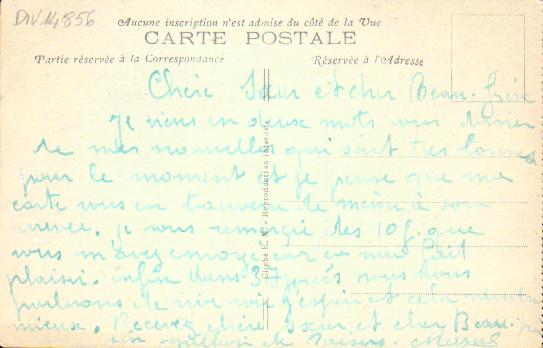 DIV14856
Aucune inscription n'est admise du côté de la Vue
CARTE POSTALE
Partie réservée à la Correspondance
Réservée à l'Adresse
Cliché E. - Reproduction interdite
Chère Sœur et cher Beau-frère
Je viens en deux mots vous donner
de mes nouvelles qui sont très bonnes
pour le moment et je pense que ma
carte vous en trouvera de même à son
arrivée. je vous remercie des 10f. que
vous m'avez envoyé car ça ma fait
plaisir. enfin dans 37 jours nous nous
parlerons de vive voix j'espère et cela vaudra
mieux. Recevez chère Sœur et cher Beau-frère
un million de baisers.